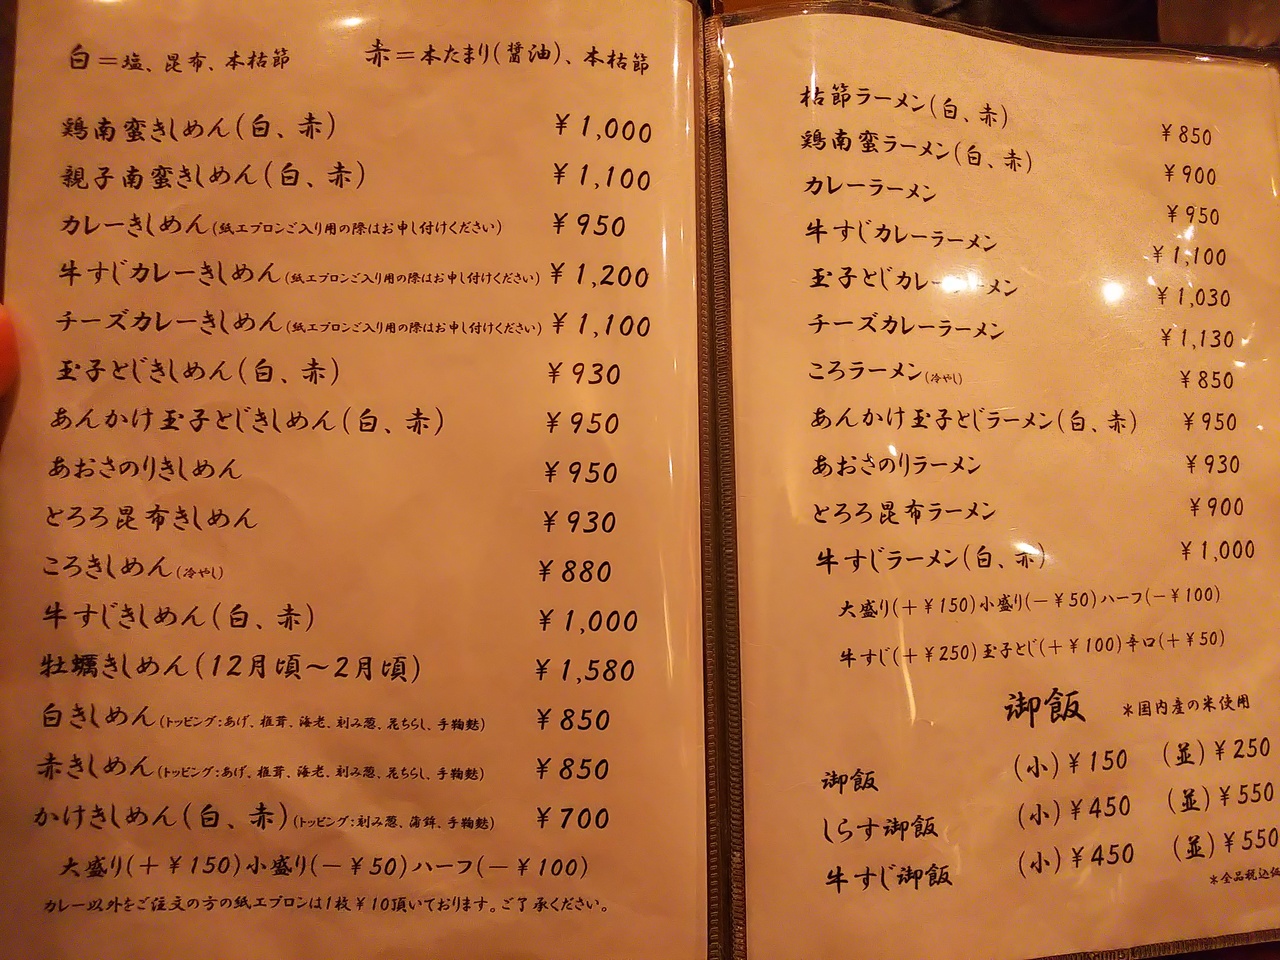 白＝塩、昆布、本枯節　赤＝本たまり(醤油)、本枯節
鶏南蛮きしめん(白、赤) ￥1,000
親子南蛮きしめん(白、赤) ￥1,100
カレーきしめん(紙エプロンご入り用の際はお申し付けください) ￥950
牛すじカレーきしめん(紙エプロンご入り用の際はお申し付けください) ￥1,200
チーズカレーきしめん(紙エプロンご入り用の際はお申し付けください) ￥1,100
玉子とじきしめん(白、赤) ￥930
あんかけ玉子とじきしめん(白、赤) ￥950
あおさのりきしめん ￥950
とろろ昆布きしめん ￥930
ころきしめん(冷やし) ￥880
牛すじきしめん(白、赤) ￥1,000
牡蠣きしめん(12月頃〜2月頃) ￥1,580
白きしめん(トッピング:あげ、椎茸、海老、刻み葱、花ちらし、手鞠麩) ￥850
赤きしめん(トッピング:あげ、椎茸、海老、刻み葱、花ちらし、手鞠麩) ￥850
かけきしめん(白、赤)(トッピング:刻み葱、蒲鉾、手鞠麩) ￥700
大盛り(＋￥150)小盛り(－￥50)ハーフ(－￥100)
カレー以外をご注文の方の紙エプロンは1枚￥10頂いております。ご了承ください。
枯節ラーメン(白、赤) ￥850
鶏南蛮ラーメン(白、赤) ￥900
カレーラーメン ￥950
牛すじカレーラーメン ￥1,100
玉子とじカレーラーメン ￥1,030
チーズカレーラーメン ￥1,130
ころラーメン(冷やし) ￥850
あんかけ玉子とじラーメン(白、赤) ￥950
あおさのりラーメン ￥930
とろろ昆布ラーメン ￥900
牛すじラーメン(白、赤) ￥1,000
大盛り(＋￥150)小盛り(－￥50)ハーフ(－￥100)
牛すじ(＋￥250)玉子とじ(＋￥100)辛口(＋￥50)
御飯 ＊国内産の米使用
御飯 (小)￥150 (並)￥250
しらす御飯 (小)￥450 (並)￥550
牛すじ御飯 (小)￥450 (並)￥550
＊全品税込価